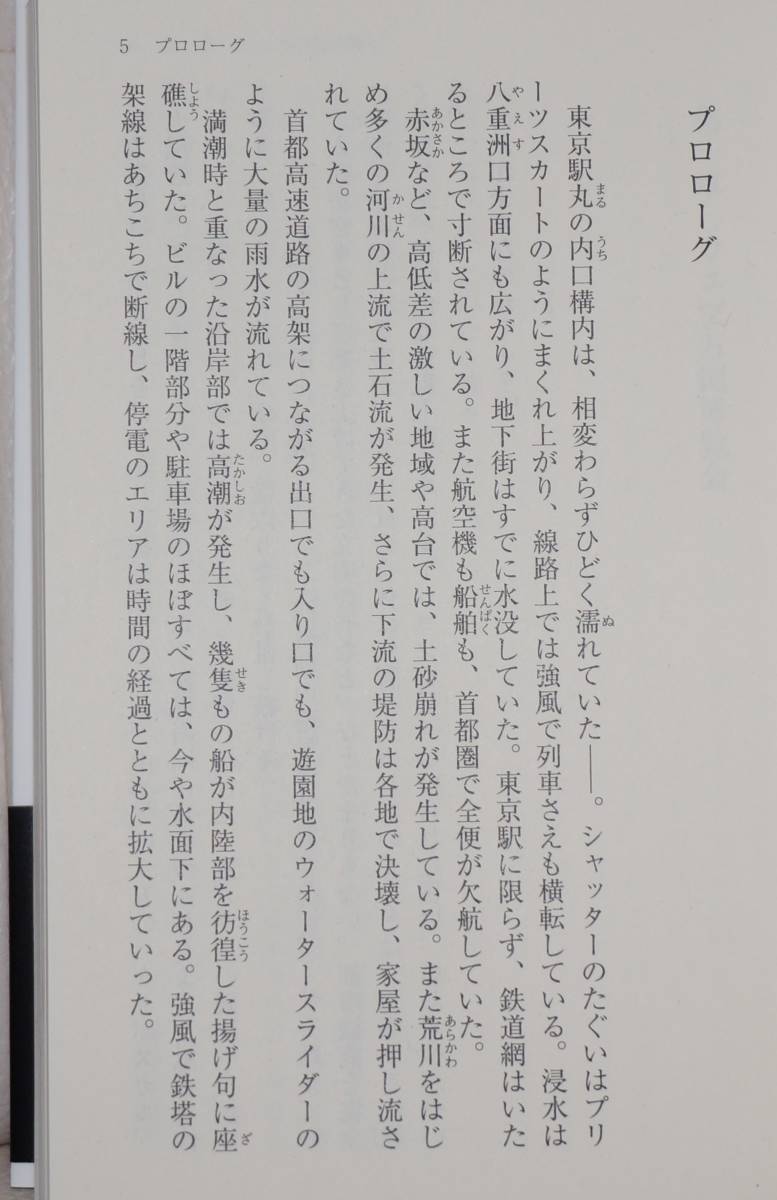 5　プロローグ
プロローグ
東京駅丸の内口構内は、相変わらずひどく濡れていた――。シャッターのたぐいはプリ
ーツスカートのようにまくれ上がり、線路上では強風で列車さえも横転している。浸水は
八重洲口方面にも広がり、地下街はすでに水没していた。東京駅に限らず、鉄道網はいた
るところで寸断されている。また航空機も船舶も、首都圏で全便が欠航していた。
赤坂など、高低差の激しい地域や高台では、土砂崩れが発生している。また荒川をはじ
め多くの河川の上流で土石流が発生、さらに下流の堤防は各地で決壊し、家屋が押し流さ
れていた。
首都高速道路の高架につながる出口でも入り口でも、遊園地のウォータースライダーの
ように大量の雨水が流れている。
満潮時と重なった沿岸部では高潮が発生し、幾隻もの船が内陸部を彷徨した揚げ句に座
礁していた。ビルの一階部分や駐車場のほぼすべては、今や水面下にある。強風で鉄塔の
架線はあちこちで断線し、停電のエリアは時間の経過とともに拡大していった。